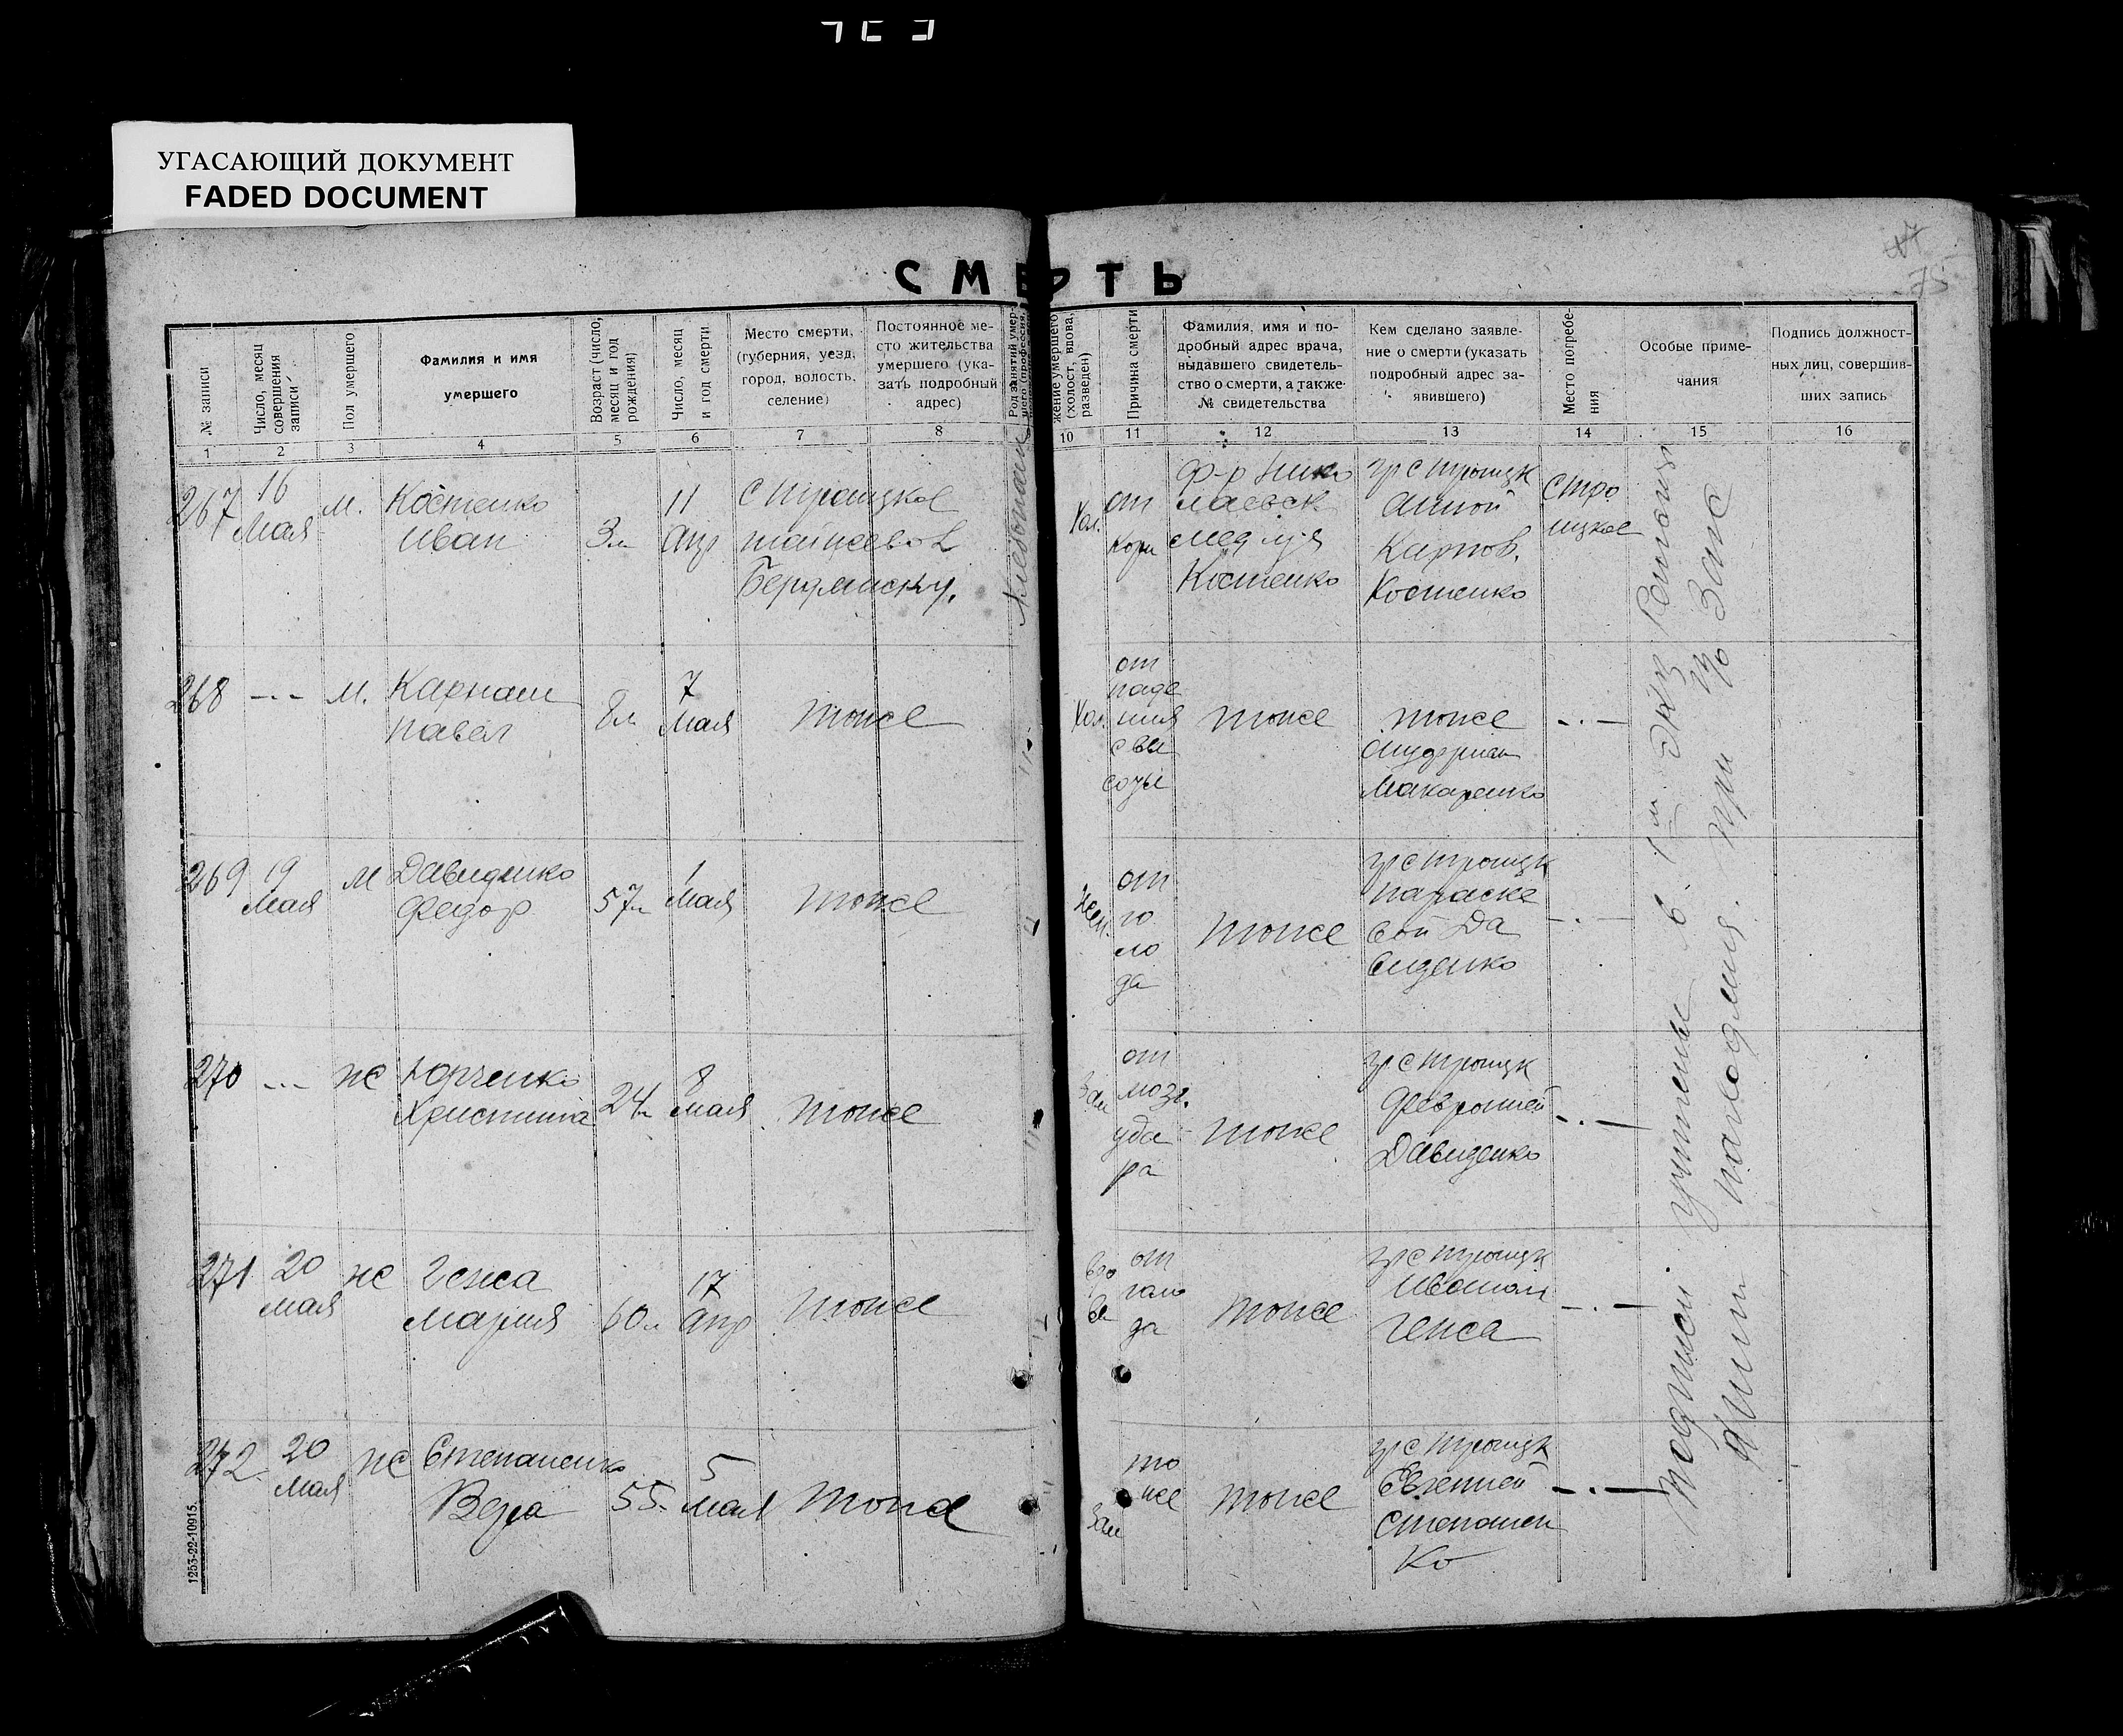 УГАСАЮЩИЙ ДОКУМЕНТ
FADED DOCUMENT
75
СМЕРТЬ
№ записи
Число, месяц
совершения
записи
Пол умершего
Фамилия и имя
умершего
Возраст (число,
месяц и год
рождения)
Число, месяц
и год смерти
Место смерти,
(губерния, уезд,
город, волость,
селение)
Постоянное ме-
сто жительства
умершего (ука-
зать подробный
адрес)
Род занятий умер-
шего (профессия,
жение умершего
(холост, вдова,
разведен)
Причина смерти
Фамилия, имя и по-
дробный адрес врача,
выдавшего свидетель-
ство о смерти, а также
№ свидетельства
Кем сделано заявле-
ние о смерти (указать
подробный адрес за-
явившего)
Место погребе-
ния
Особые приме-
чания
Подпись должност-
ных лиц, совершив-
ших запись
1 2 3 4 5 6 7 8 10 11 12 13 14 15 16
267
16
Мая
м.
Костенко
Иван
3 л
11
Апр
с Троицкое
Бердянску.
Хол.
от
кори
Костенко
гр с Троицк
Анной
Карпов.
Костенко
с Тро
ицкое
268
м.
Карнаш
Павел
8 л
7
мая
тоже
Хол.
от
паде
ния
с вы
соты
тоже
тоже
Макаренко
269
19
Мая
м
Давиденко
Федор
57 л
1
мая
тоже
Жен.
от
го
ло
да
тоже
гр с Троицк
Параске
вой Да
виденко
270
ж
Юрченко
Христина
24 л
8
мая
тоже
Зам
от
мозг.
уда
ра
тоже
гр с Троицк
Февронией
Давиденко
271
20
мая
ж
Гежа
Мария
60 л
17
Апр
тоже
вдо
ва
от
голо
да
тоже
гр с Троицк
Иваном
Гежа
272
20
мая
ж
Степаненко
Вера
55
5
мая
тоже
Зам
то
же
тоже
гр с Троицк
Евгенией
Степанен
ко
1253-22-10915